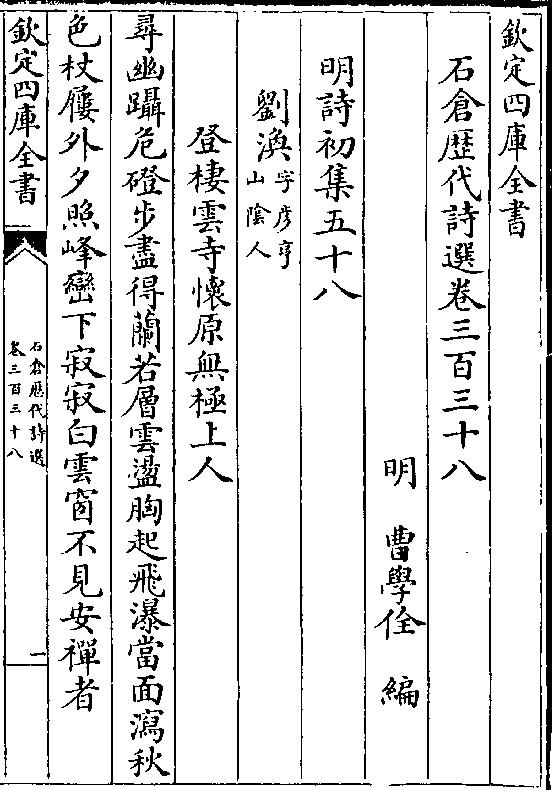 欽定四庫全書
石倉歴代詩選卷三百三十八
明 曹學佺 編
明詩初集五十八
劉渙字彦亨山陰人
登棲雲寺懷原無極上人
尋幽躡危磴步盡得蘭若層雲盪胸起飛瀑當面瀉秋
色杖屨外夕照峰巒下寂寂白雲窗不見安禪者
欽定四庫全書
石倉歴代詩選
卷三百三十八
一